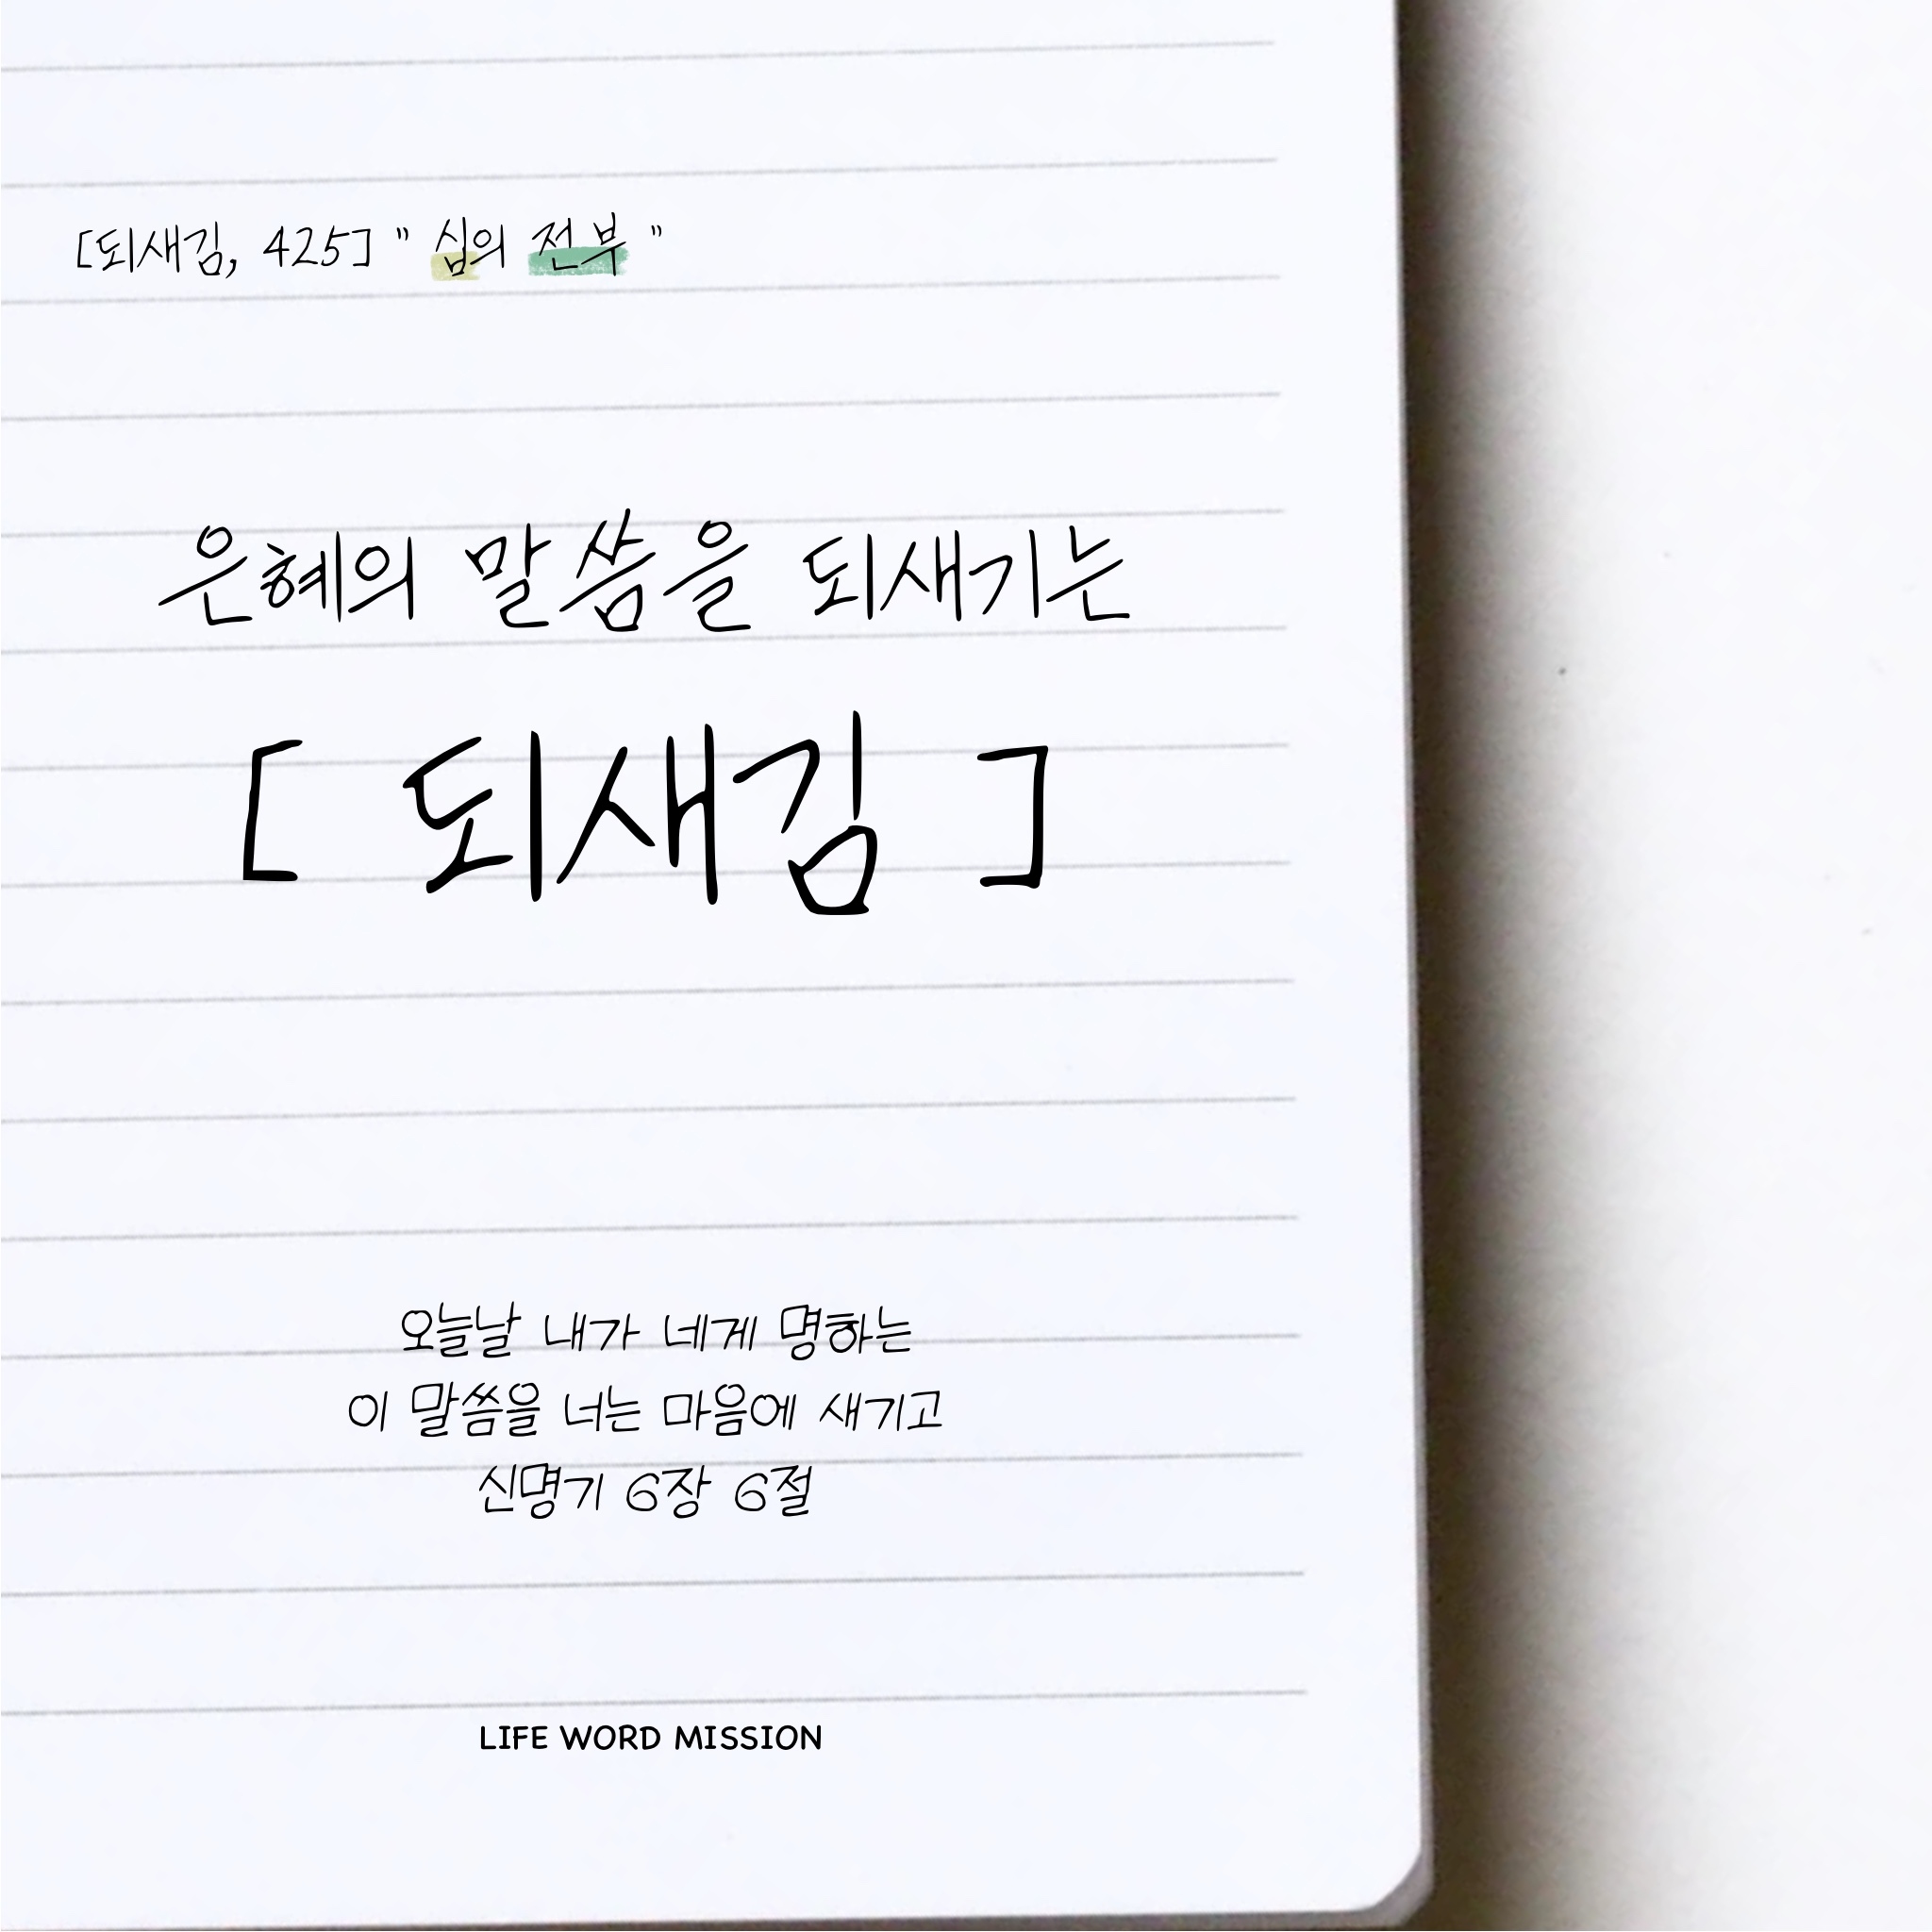 [되새김, 425] " 쉼의 전부 "
은혜의 말씀을 되새기는
[ 되새김 ]
오늘날 내가 네게 명하는
이 말씀을 너는 마음에 새기고
신명기 6장 6절
LIFE WORD MISSION